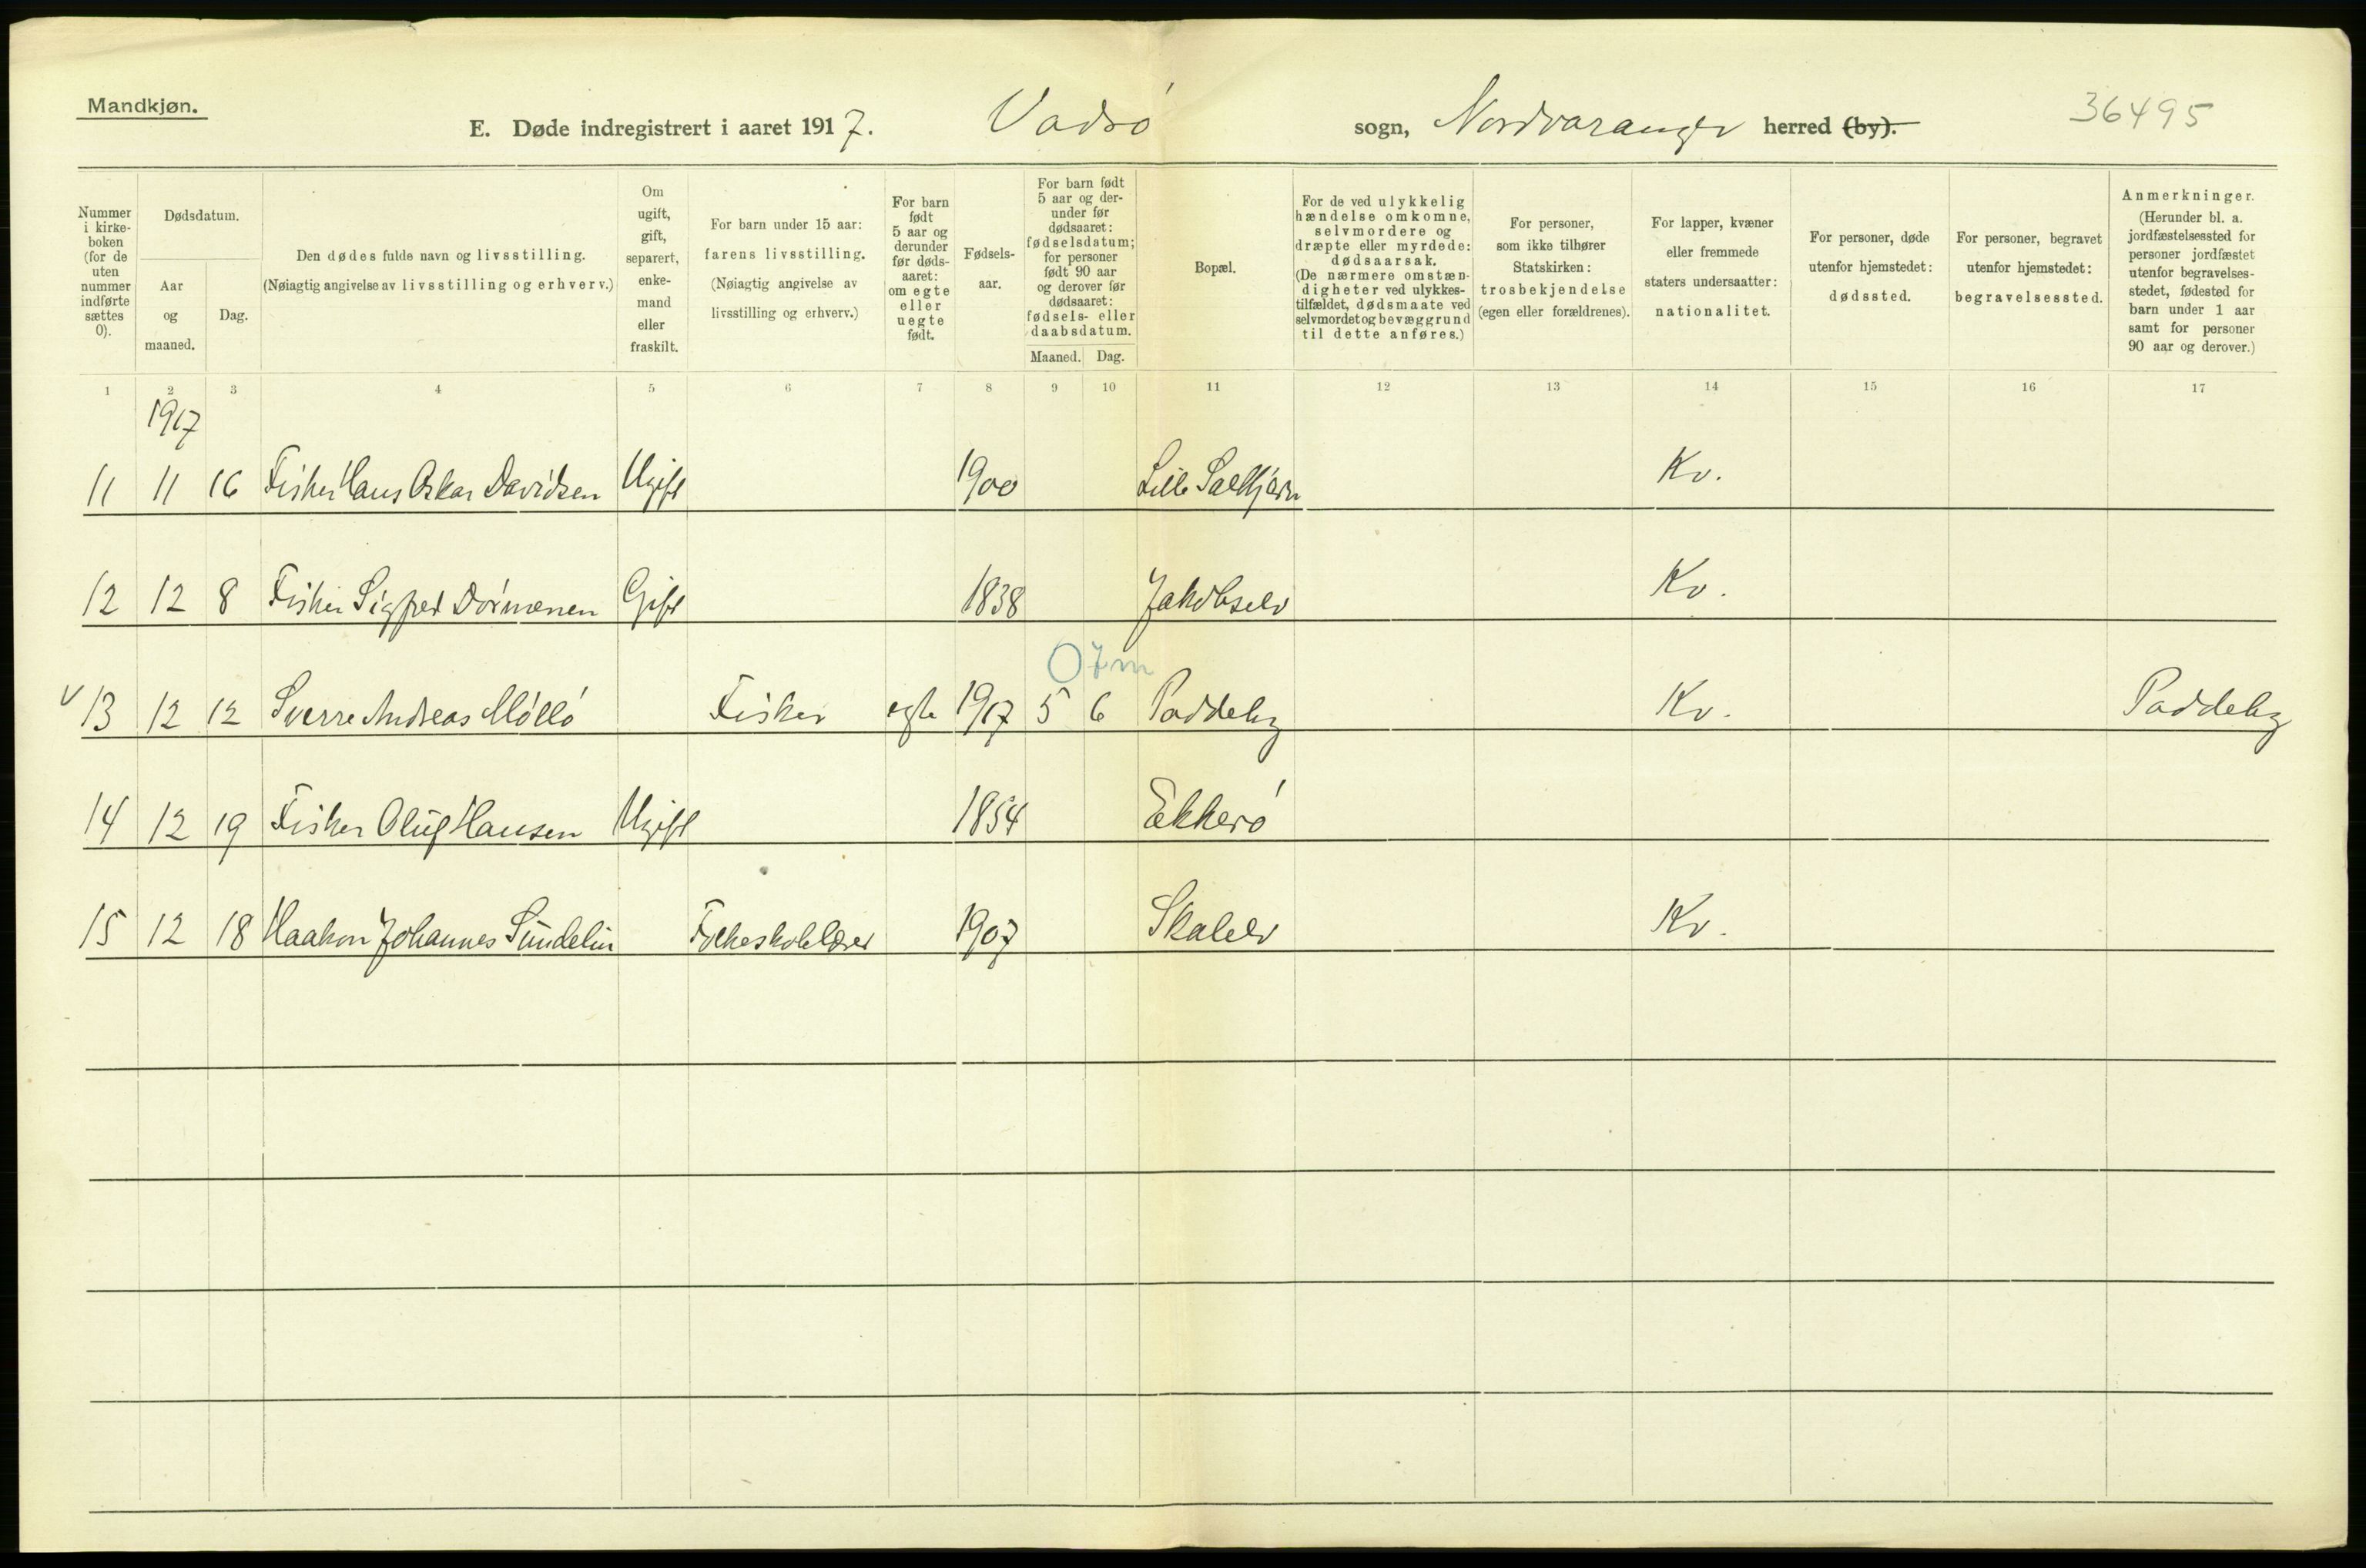 Mandkjøn.
E. Døde indregistrert i aaret 1917. Vadsø sogn, Nordvaranger herred (by).
36495
Nummer i kirke-boken (for de uten nummer indførte sættes 0).
Dødsdatum.
Aar og maaned.
Dag.
Den dødes fulde navn og livsstilling.
(Nøiagtig angivelse av livsstilling og erhverv.)
Om ugift, gift, separert, enke-mand eller fraskilt.
For barn under 15 aar: farens livsstilling.
(Nøiagtig angivelse av livsstilling og erhverv.)
For barn født 5 aar og derunder før døds-aaret: om egte eller uegte født.
Fødsels-aar.
For barn født 5 aar og der-under før dødsaaret: fødselsdatum; for personer født 90 aar og derover før dødsaaret: fødsels- eller daabsdatum.
Maaned. Dag.
Bopæl.
For de ved ulykkelig hændelse omkomne, selvmordere og dræpte eller myrdede: dødsaarsak.
(De nærmere omstæn-digheter ved ulykkes-tilfældet, dødsmaate ved selvmordet og bevæggrund til dette anføres.)
For personer, som ikke tilhører Statskirken: trosbekjendelse (egen eller forældrenes).
For lapper, kvæner eller fremmede staters undersaatter: nationalitet.
For personer, døde utenfor hjemstedet: dødssted.
For personer, begravet utenfor hjemstedet: begravelsessted.
Anmerkninger.
(Herunder bl. a. jordfæstelsessted for personer jordfæstet utenfor begravelses-stedet, fødested for barn under 1 aar samt for personer 90 aar og derover.)
1 2 3 4 5 6 7 8 9 10 11 12 13 14 15 16 17
1917
11 11 16 Fisker Hans Oskar Davidsen Ugift 1900 Lille Kv.
12 12 8 Fisker Sigfred Gift 1838 Jakobselv Kv.
07m
v 13 12 12 Sverre Andreas Mölló Fisker egte 1917 5 6 Paddeby Kv. Paddeby
14 12 19 Fisker Oluf Hansen Ugift 1854 Ekkerö
15 12 18 Haakon Johannes Sundelin Folkeskolelærer 1907 Skalelv Kv.